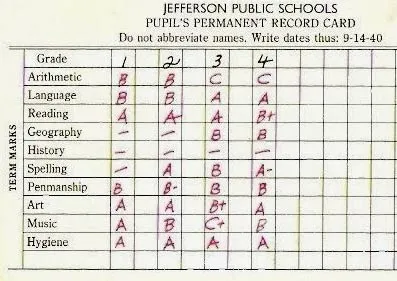 JEFFERSON PUBLIC SCHOOLS
PUPIL'S PERMANENT RECORD CARD
Do not abbreviate names. Write dates thus: 9-14-40
TERM MARKS
Grade 1 2 3 4
Arithmetic B B C C
Language B B A A
Reading A A- A B+
Geography — — B B
History — — — —
Spelling — A B A-
Penmanship B B- B B
Art A A B+ A
Music A B C+ B
Hygiene A A A A